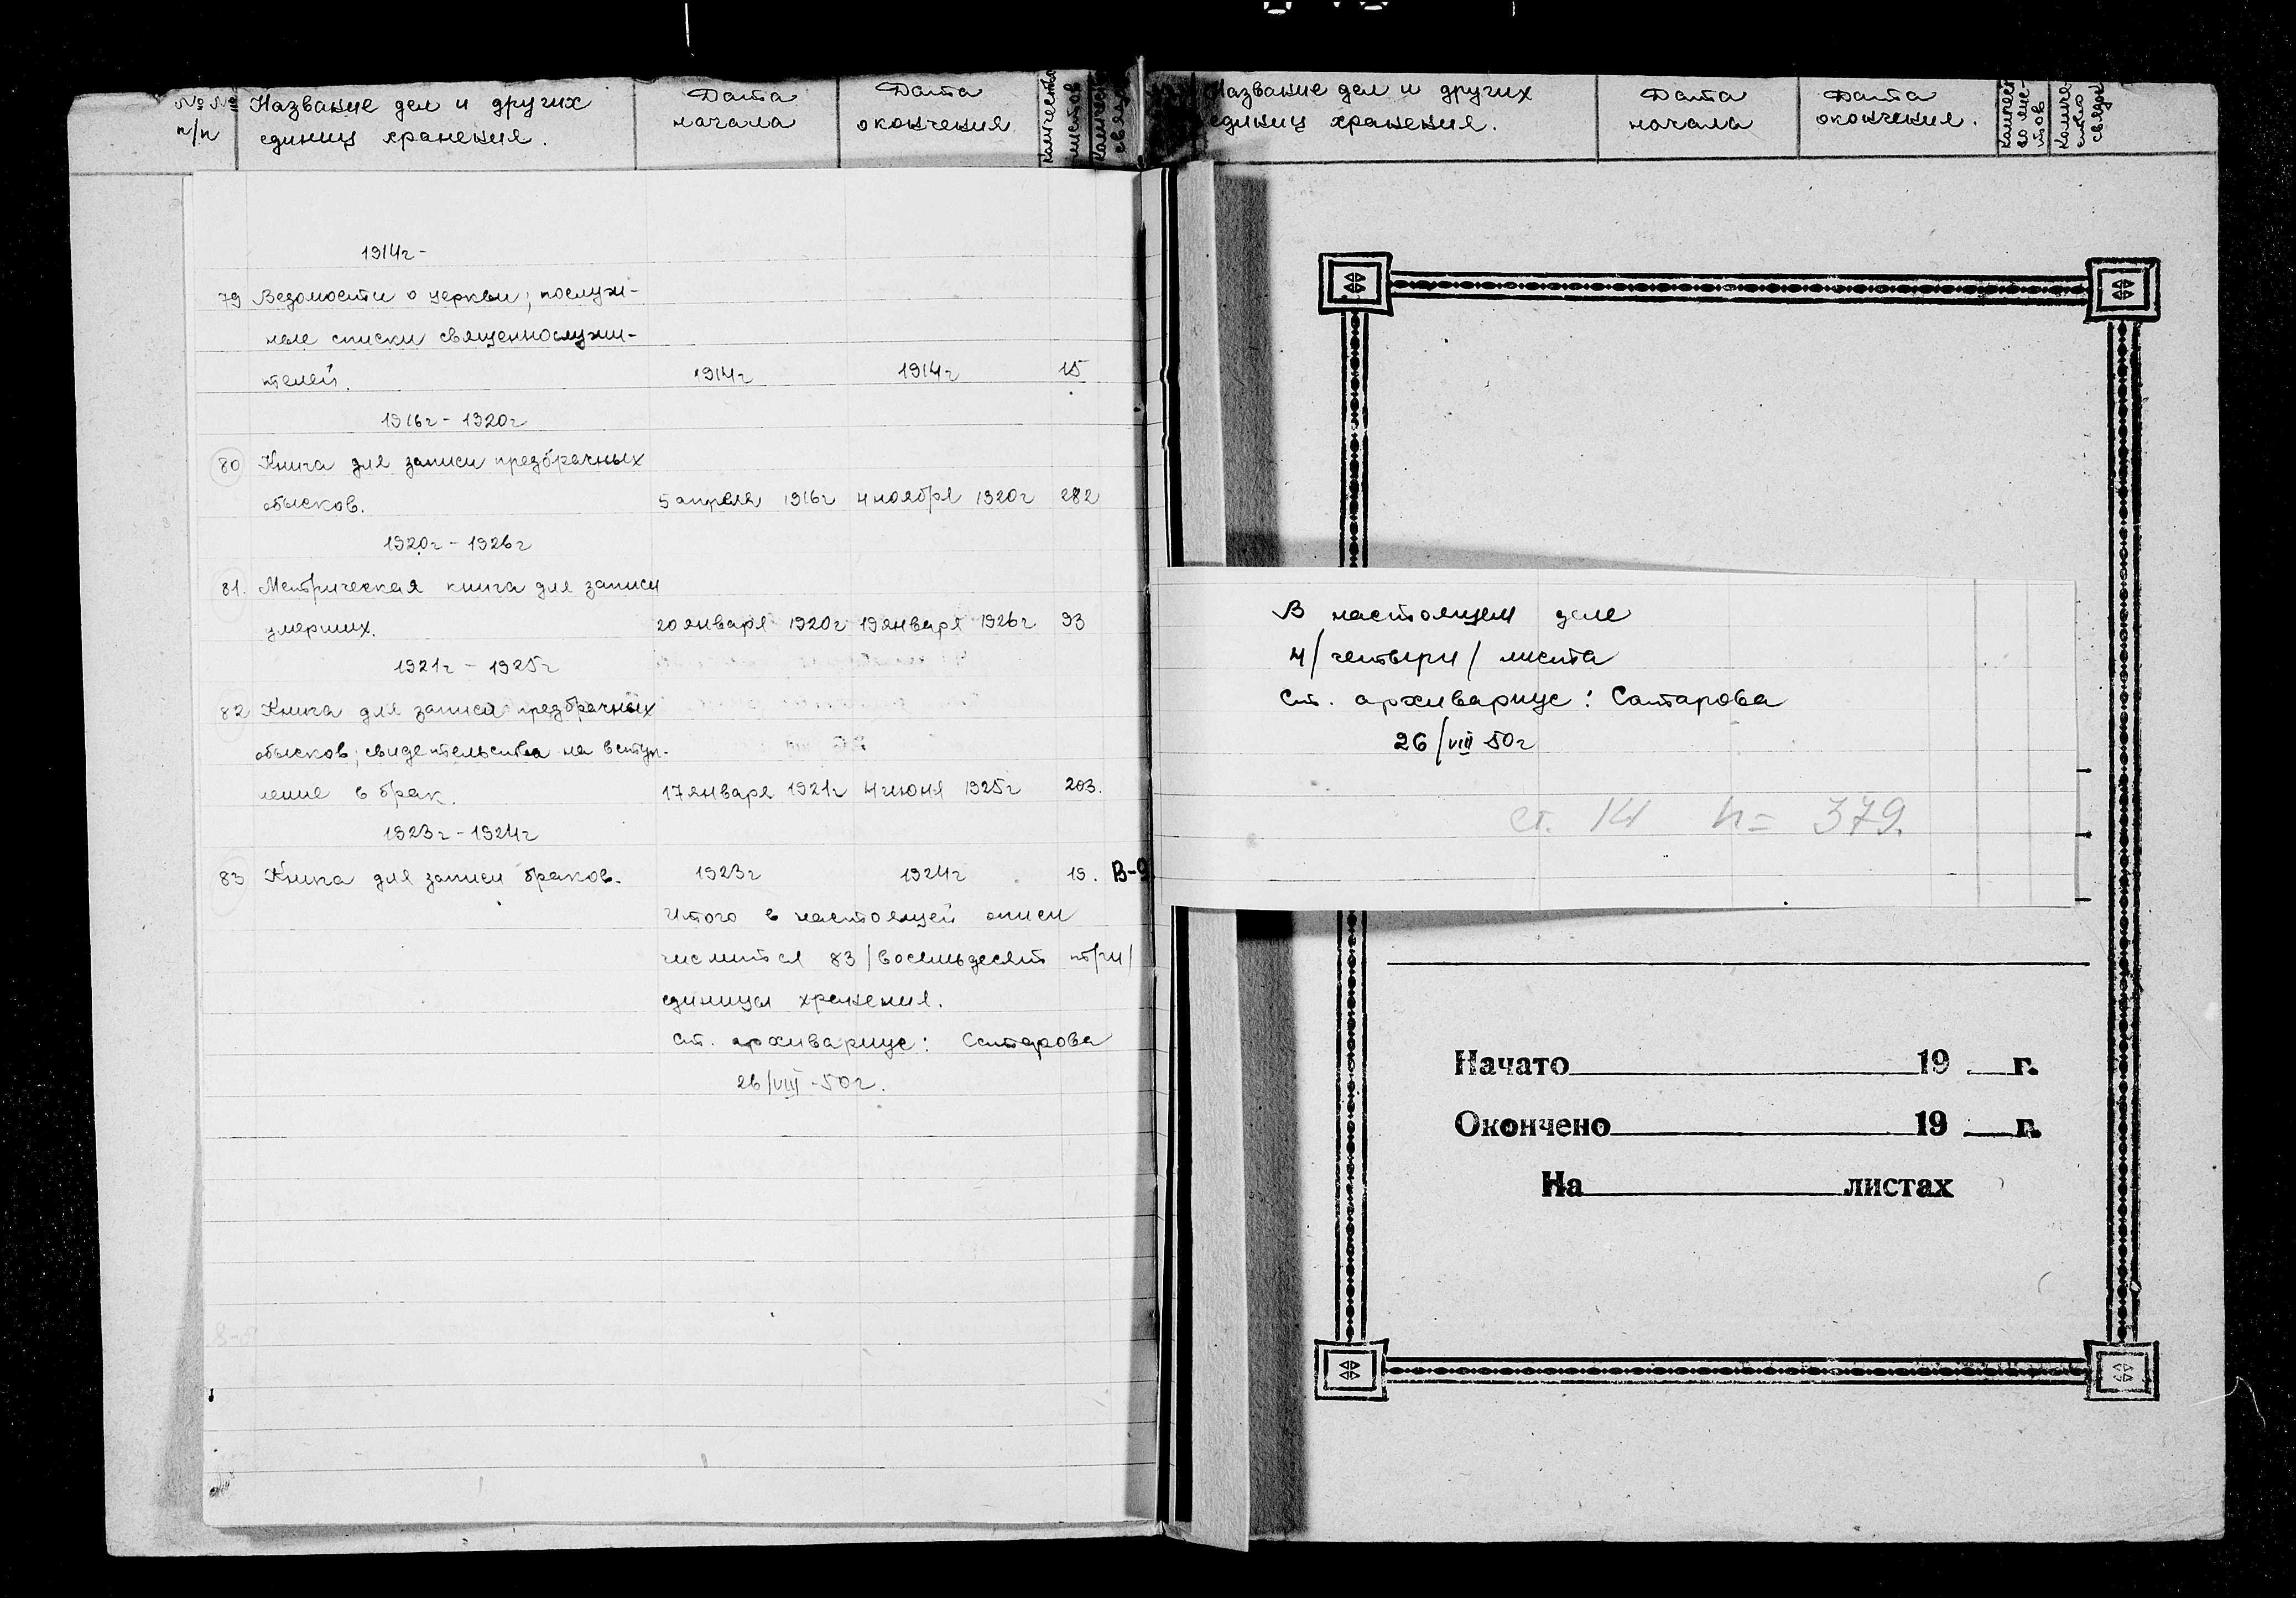 №№ Название дел и других Дата Дата Количество листов Количест связок
п/п единиц хранения. начала окончения
1914г -
79 Ведомости о церкви; послуж-
ные списки священнослужи-
телей. 1914г 1914г 15
1916г - 1920г
80 Книга для записи предбрачных
обысков. 5 апреля 1916г 4 ноября 1920г 282
1920г - 1926г
81. Метрическая книга для записи
умерших. 20 января 1920г 19 января 1926г 93
1921г - 1925г
82 Книга для записи предбрачных
обысков; свидетельства на вступ-
ление в брак. 17 января 1921г 4 июня 1925г 203.
1923г - 1924г
83 Книга для записи браков. 1923г 1924г 19. В-9
Итого в настоящей описи
числится 83 /восемьдесят три/
единицы хранения.
Ст. архивариус: Сатарова
26/VIII -50г.
Название дел и других Дата Дата Количест во лис- тов Количе- ство связок
единиц хранения. начала окончения.
В настоящем деле
4/ четыри/ листа
Ст. архивариус: Сатарова
26/VIII 50г
ст. 14 н= 379.
Начато 19 г.
Окончено 19 г.
На листах